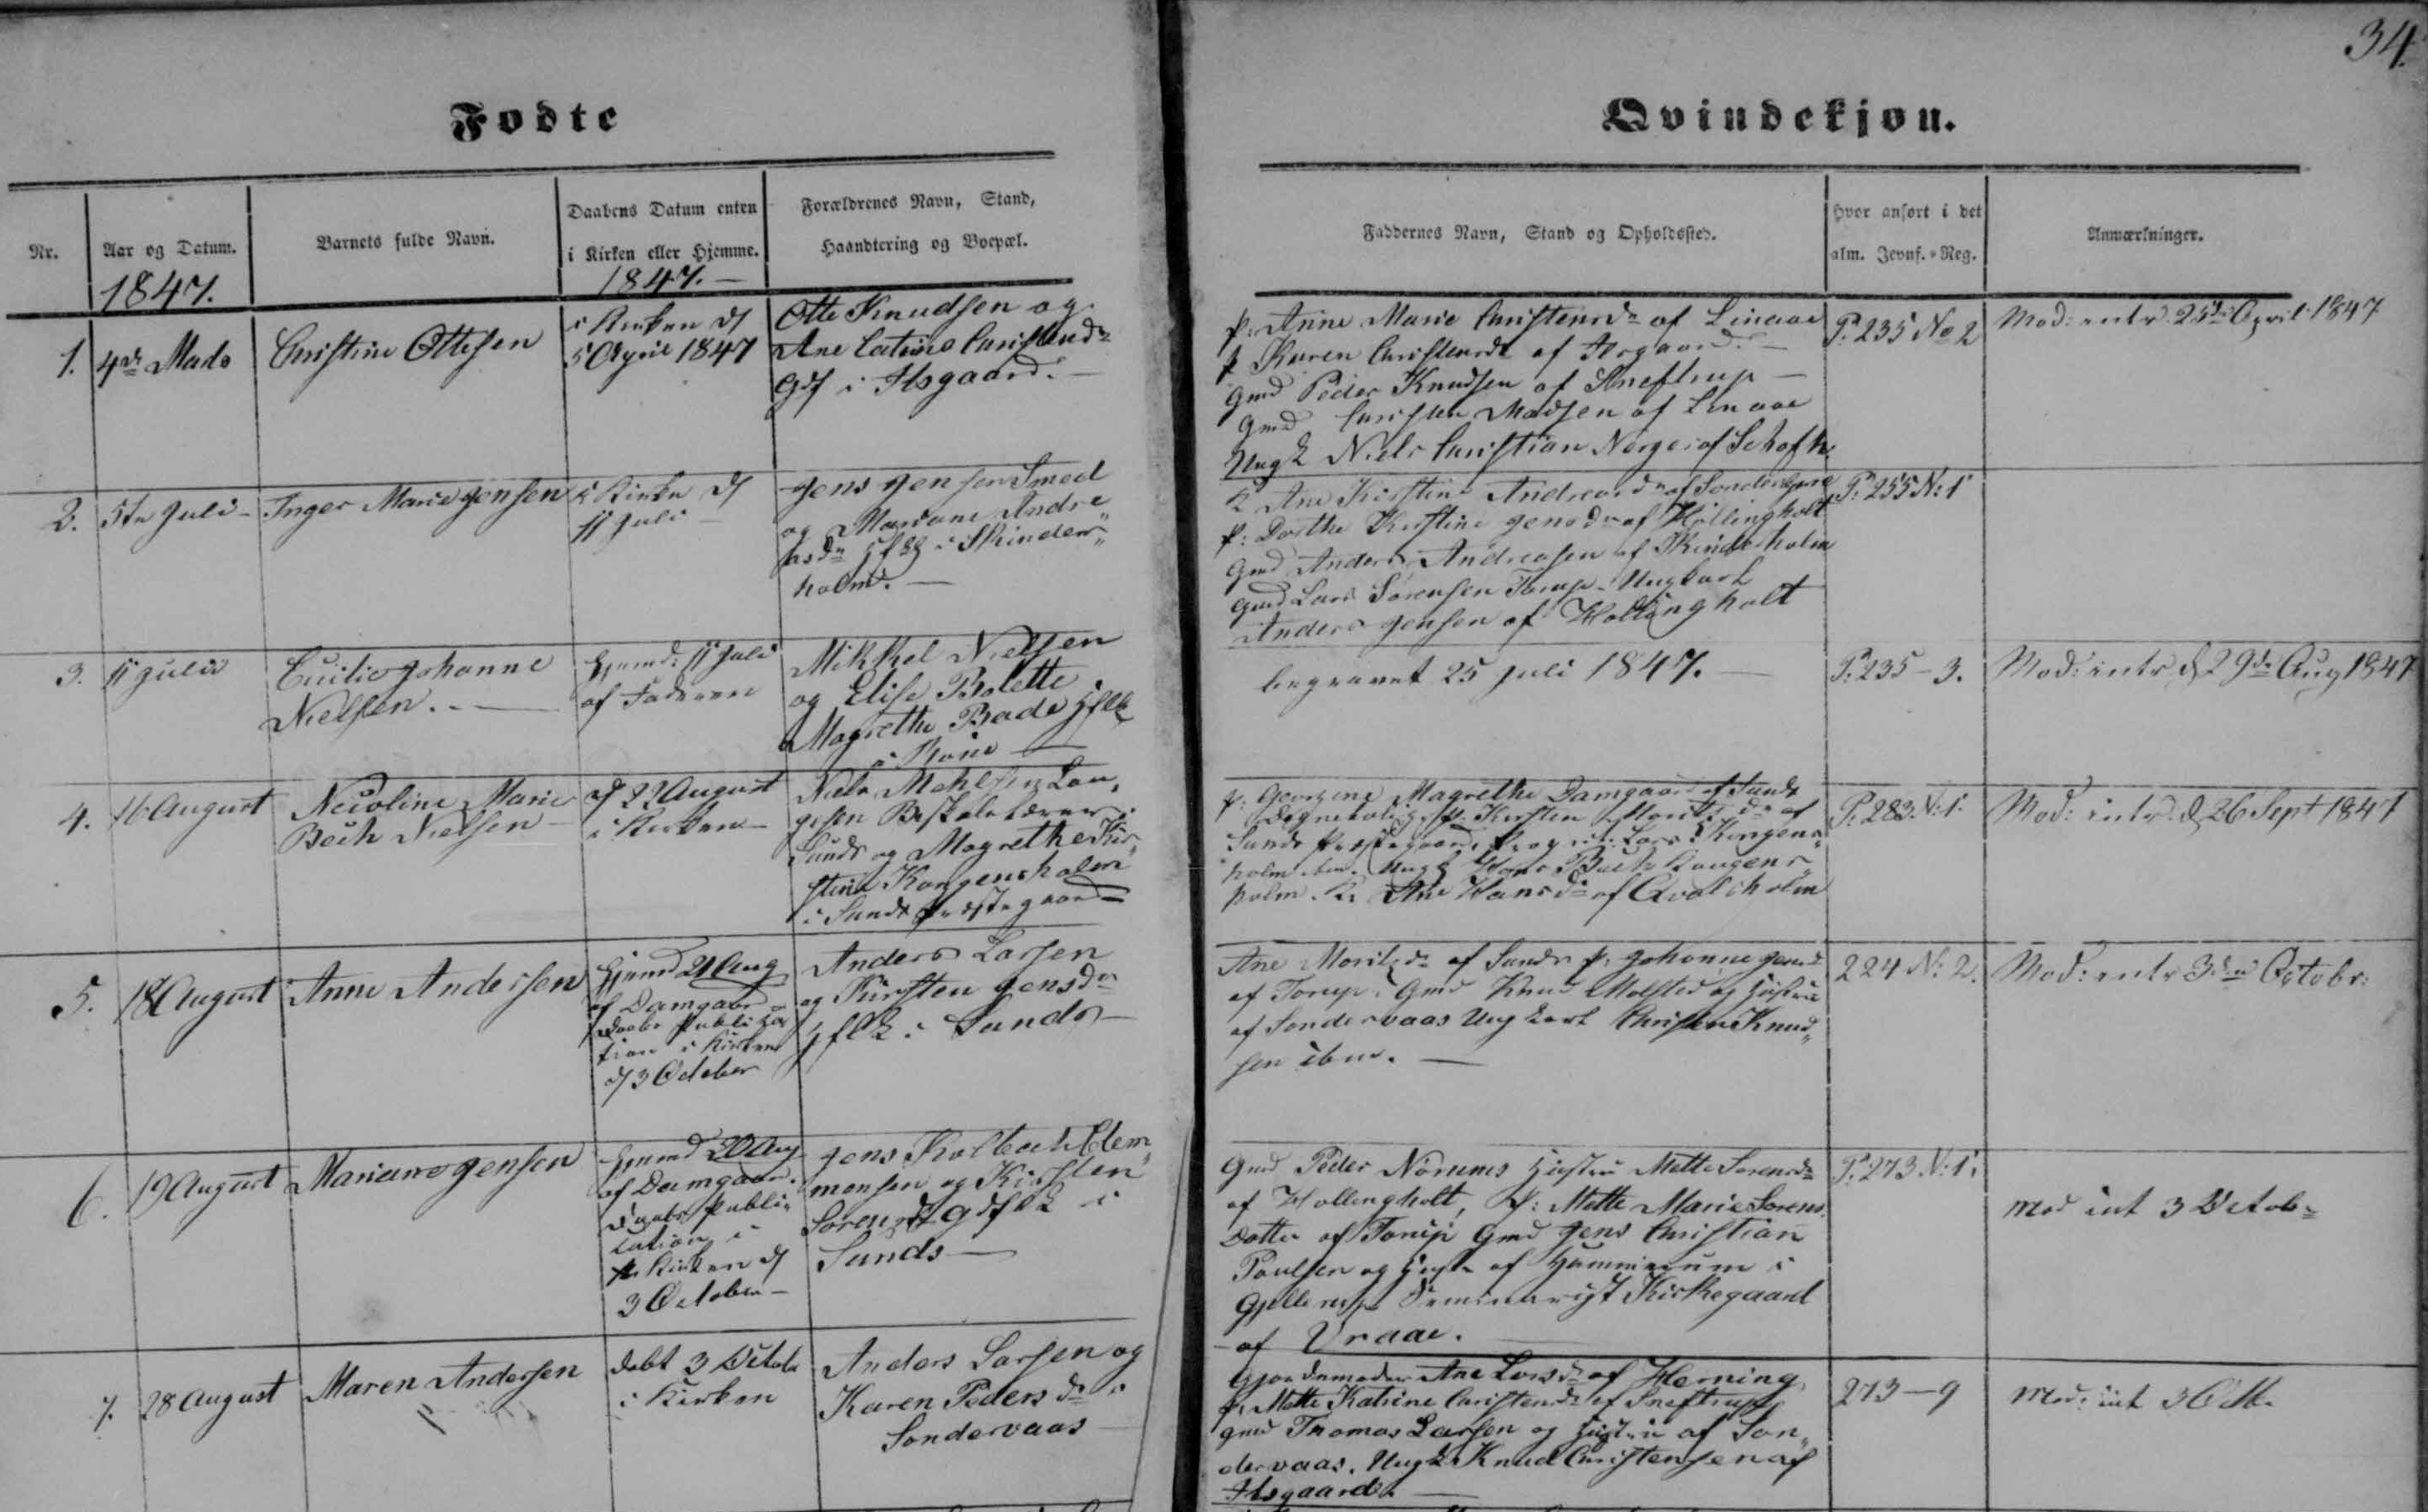 34.
Fødte
Qvindekjøn.
Nr.
Aar og Datum.
1847.
Barnets fulde Navn.
Daabens Datum enten
i Kirken eller Hjemme.
1847.
Forældrenes Navn, Stand,
Haandtering og Boepæl.
Faddernes Navn, Stand og Opholdssted.
Hvor anført i det
alm. Jevnf.-Reg.
Anmærkninger.
1.
4de Mads
Christine Ottesen
i Kirken d
5 April 1847
Otte Knudsen og
Ane Catrine Christensd
i Ilsgaard.
p: Anne Marie Christensd af Linaae
p Karen Christensd af
Gmd Peder Knudsen af Sneftrup
Gmd Christen Madsen af Linaae
Ungk Niels Christian Nørge af
P. 235 No 2
Mod: intr. 25de April 1847
2.
5te Juli
Inger Marie Jensen
i Kirken d
11 Juli
Jens Jensen Smed
og Mariane Andre
asdr i Skinder
holm.
Ane Kirstine Andreasdr af
p: Dorthe Kirstine Jensdr af Hollingholt
Gmd Anders Andreasen af Skinderholm
Gmd Lars Sørensen Torup Ungkarl
Anders Jensen af Hollingholt
P. 255 N: 1
3.
11 Julii
Johanne
Nielsen.
Hjemmed: 11 Juli
af Faderen
Mikkel Nielsen
og Elise Bolette
Magrethe Bade
i
begravet 25 Juli 1847.
P: 235 - 3.
Mod: intr d 29de Aug 1847
4.
16 August
Nicoline Marie
Bech Nielsen
d 22 August
i Kirken
Niels
Sunds og Magrethe Kir
stine Kongensholm
i Sunds Præstegaard
p: Georgine Magrethe Damgaard af Sunds
p: Kirsten af
Sunds Præstegaard, Lars Kongens
holm ibm. Ungk Hans Bech Kongens
holm. Ane Hansdr af Qvalsholm
P. 283. N: 1.
Mod: intr d 26 Sept 1847
5.
18 August
Anne Andersen
Hjemmd 21 Aug
af Damgaard
Daabs Publika
tion i Kirken
d 3 October
Anders Larsen
og Kirsten Jensdr
i Sunds
Ane af Sunds p. Johanne Jensd
af Torup. Gmd Knud Molsted og Hustru
af Søndervaas Ungkarl Christen Knud
sen ibm.
224 N: 2.
Mod: intr 3die Octobr:
6.
19 August
Mariane Jensen
Hjemmd 20 Aug
af Damgaard.
Daabs Publi
cation i
Kirken d
3 October
Jens Kolbech Clem
mensen og Kirsten
Sørensdr i
Sunds
Gmd Peder Nørums Hustru Mette Sørensdr
af Hollingholt, P: Mette Marie Sørens
Datter af Torup Gmd Jens Christian
Poulsen og Hustru af Hammerum i
Gjellerup Seminarist Kirkegaard
af Vraae.
P. 273. N: 1.
Mod int 3 Octob
7.
28 August
Maren Andersen
døbt 3 Octob
i Kirken
Anders Larsen og
Karen Pedersdr i
Søndervaas
Gjordemoder Ane Larsdr af Herning
p. Mette Katrine Christensdr af Sneftrup
Gmd Thomas Larsen og Hustru af Søn
dervaas. Ungk Knud Christensen af
Ilsgaard.
273 - 9
Mod: int 3 Oct.